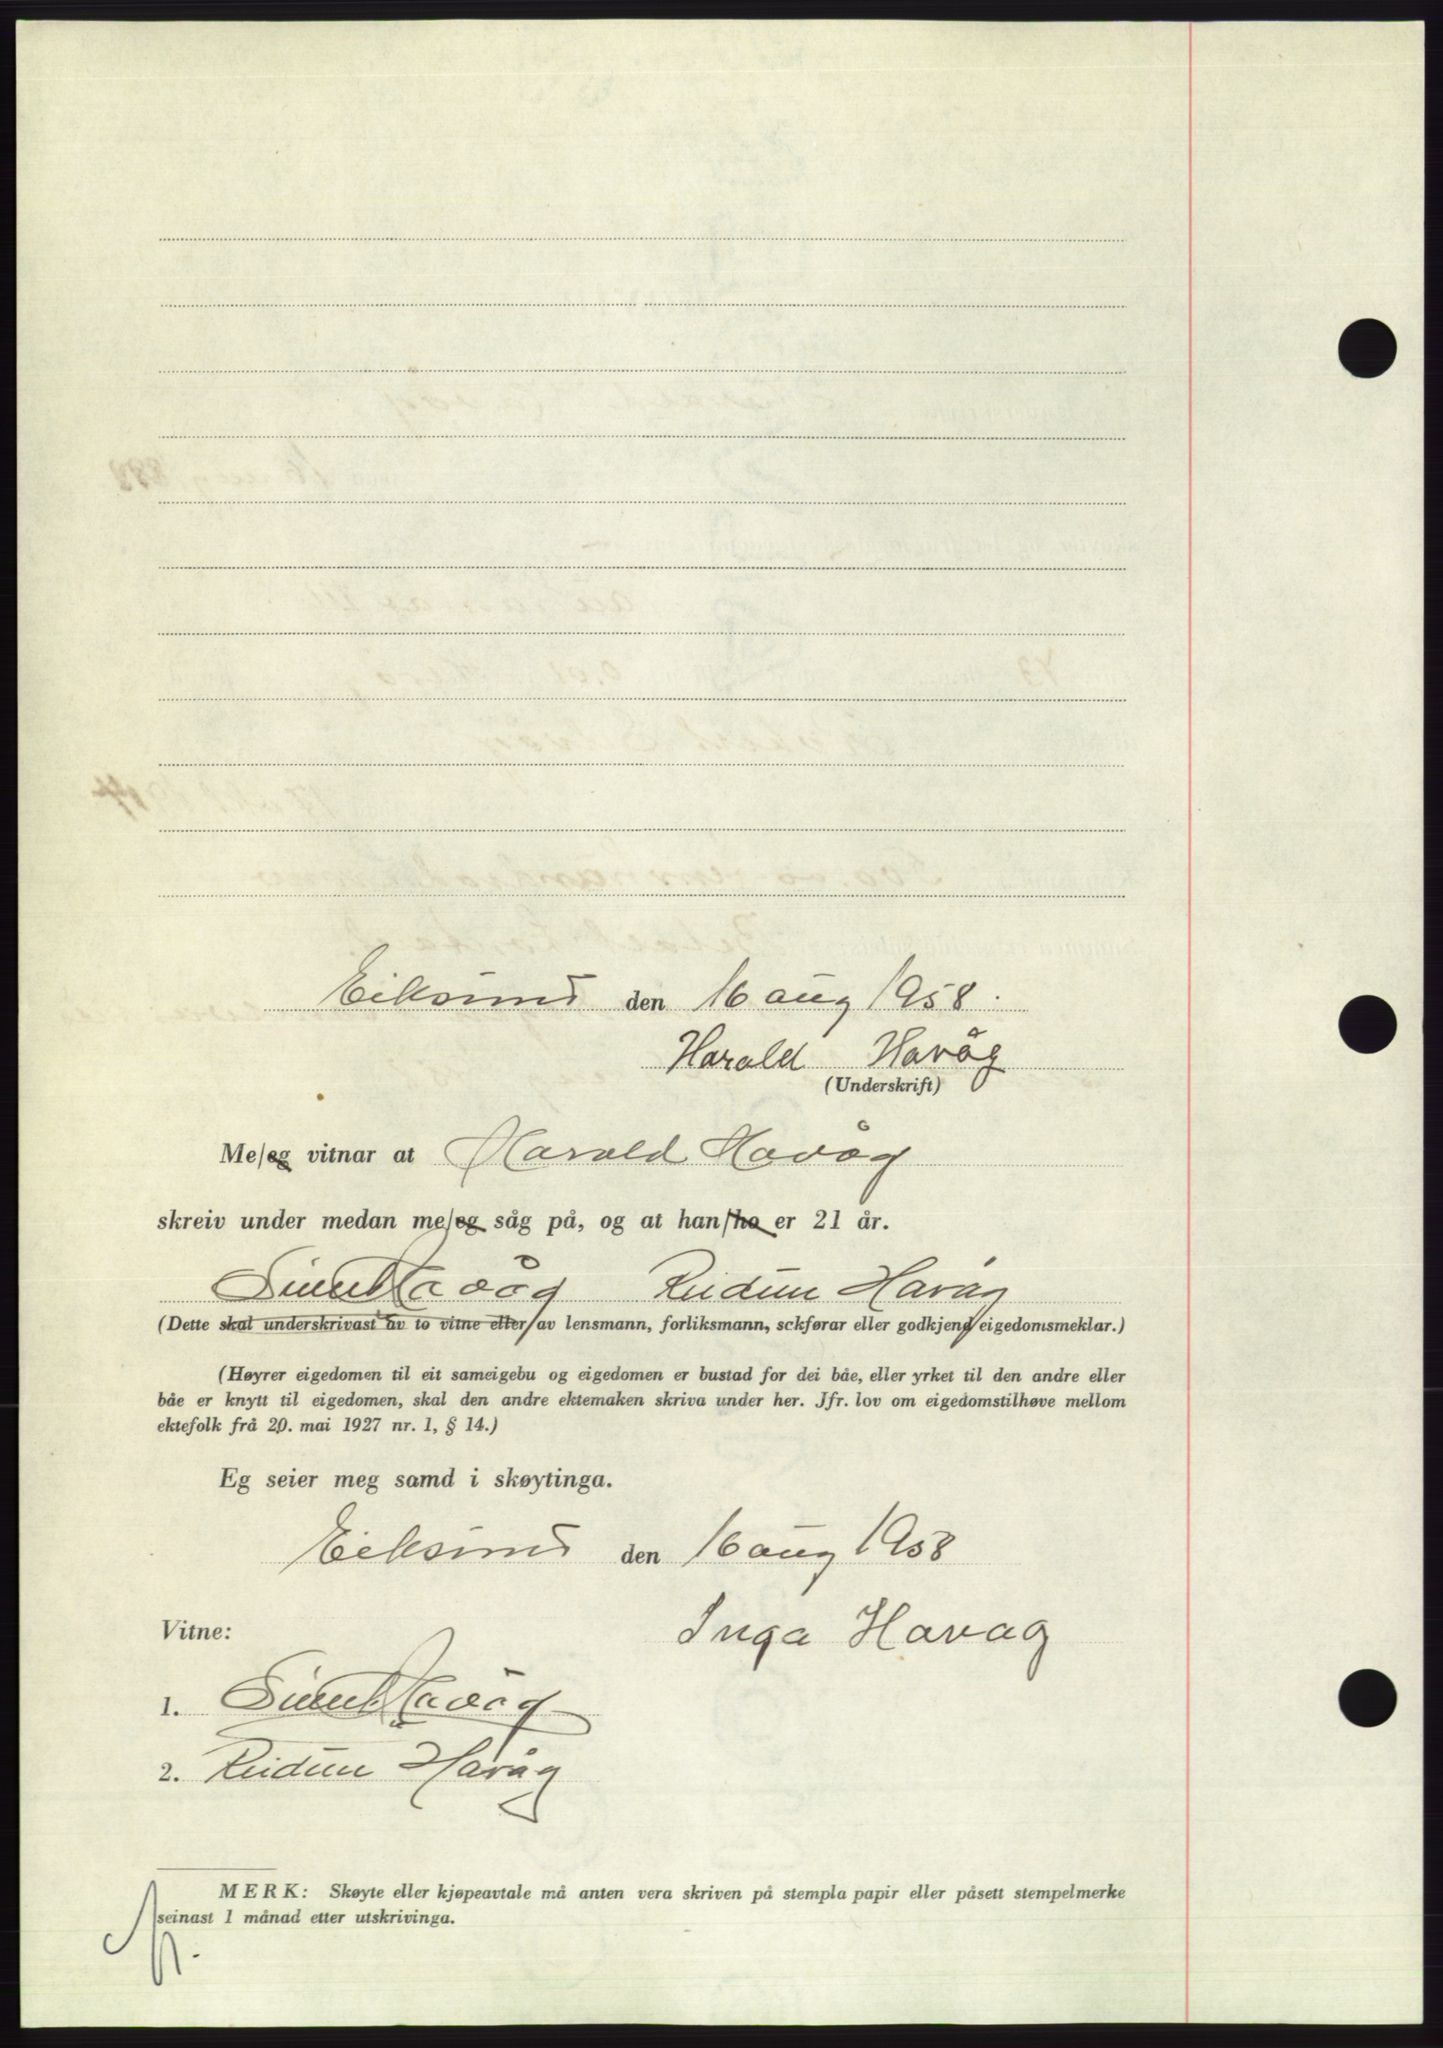 Eiksund den 16 aug 1958.
Harald Havåg
(Underskrift)
Me/eg vitnar at Harald Havåg
skreiv under medan me/eg såg på, og at han/ho er 21 år.
Havåg Reidun Havåg
(Dette skal underskrivast av to vitne eller av lensmann, forliksmann, sckførar eller godkjend eigedomsmeklar.)
(Høyrer eigedomen til eit sameigebu og eigedomen er bustad for dei båe, eller yrket til den andre eller
båe er knytt til eigedomen, skal den andre ektemaken skriva under her. Jfr. lov om eigedomstilhøve mellom
ektefolk frå 20. mai 1927 nr. 1, § 14.)
Eg seier meg samd i skøytinga.
Eiksund den 16 aug 1958
Inga Havag
Vitne:
1. Havåg
2. Reidun Havåg
MERK: Skøyte eller kjøpeavtale må anten vera skriven på stempla papir eller påsett stempelmerke
seinast 1 månad etter utskrivinga.